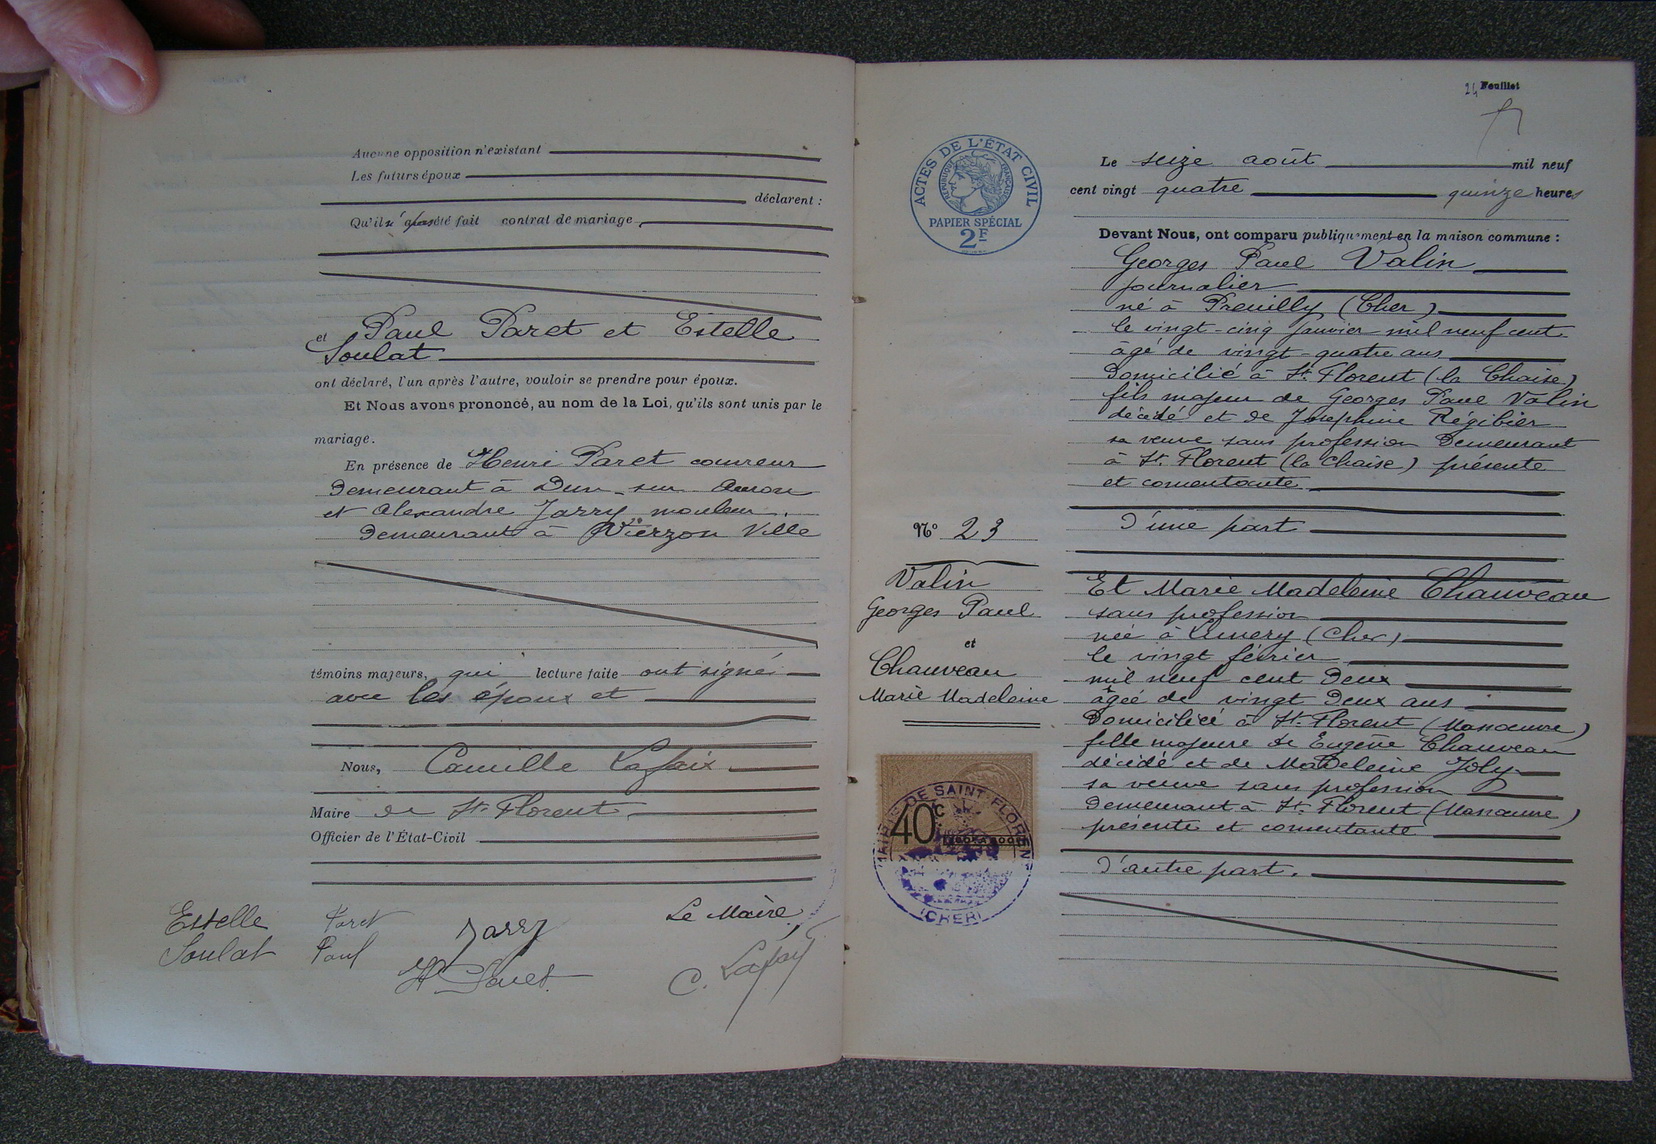 Aucune opposition n'existant
Les futurs époux
déclarent :
Qu'il n'a pas été fait contrat de mariage
et Paul Paret et Estelle
Soulat
ont déclaré, l'un après l'autre, vouloir se prendre pour époux.
Et Nous avons prononcé, au nom de la Loi, qu'ils sont unis par le
mariage.
En présence de Henri Paret couvreur
demeurant à Dun-sur-Auron
et Alexandre Jarry mouleur
demeurant à Vierzon Ville
témoins majeurs, qui lecture faite ont signé
avec les époux et
Nous, Camille Lafaix
Maire de St Florent
Officier de l'État-Civil
Estelle Paret Jarry Le Maire
Soulat Paul H Paret C. Lafaix
24 Feuillet
ACTES DE L'ÉTAT CIVIL
RÉPUBLIQUE FRANÇAISE
PAPIER SPÉCIAL
2F
Le seize août mil neuf
cent vingt quatre quinze heures
Devant Nous, ont comparu publiquement en la maison commune :
Georges Paul Valin
journalier
né à Preuilly (Cher)
le vingt-cinq janvier mil neuf cent
âgé de vingt-quatre ans
domicilié à St Florent (la Chaise)
fils majeur de Georges Paul Valin
décédé et de Joséphine Régibier
sa veuve sans profession demeurant
à St Florent (la Chaise) présente
et consentante
d'une part
N° 23
Valin
Georges Paul
et
Chauveau
Marie Madeleine
Et Marie Madeleine Chauveau
sans profession
née à Lunery (Cher)
le vingt février
mil neuf cent deux
âgée de vingt deux ans
domiciliée à St Florent (Massoeuvre)
fille majeure de Eugène Chauveau
décédé et de Madeleine Joly
sa veuve sans profession
demeurant à St Florent (Massoeuvre)
présente et consentante
d'autre part.
40c
MAIRIE DE SAINT-FLORENT
(CHER)